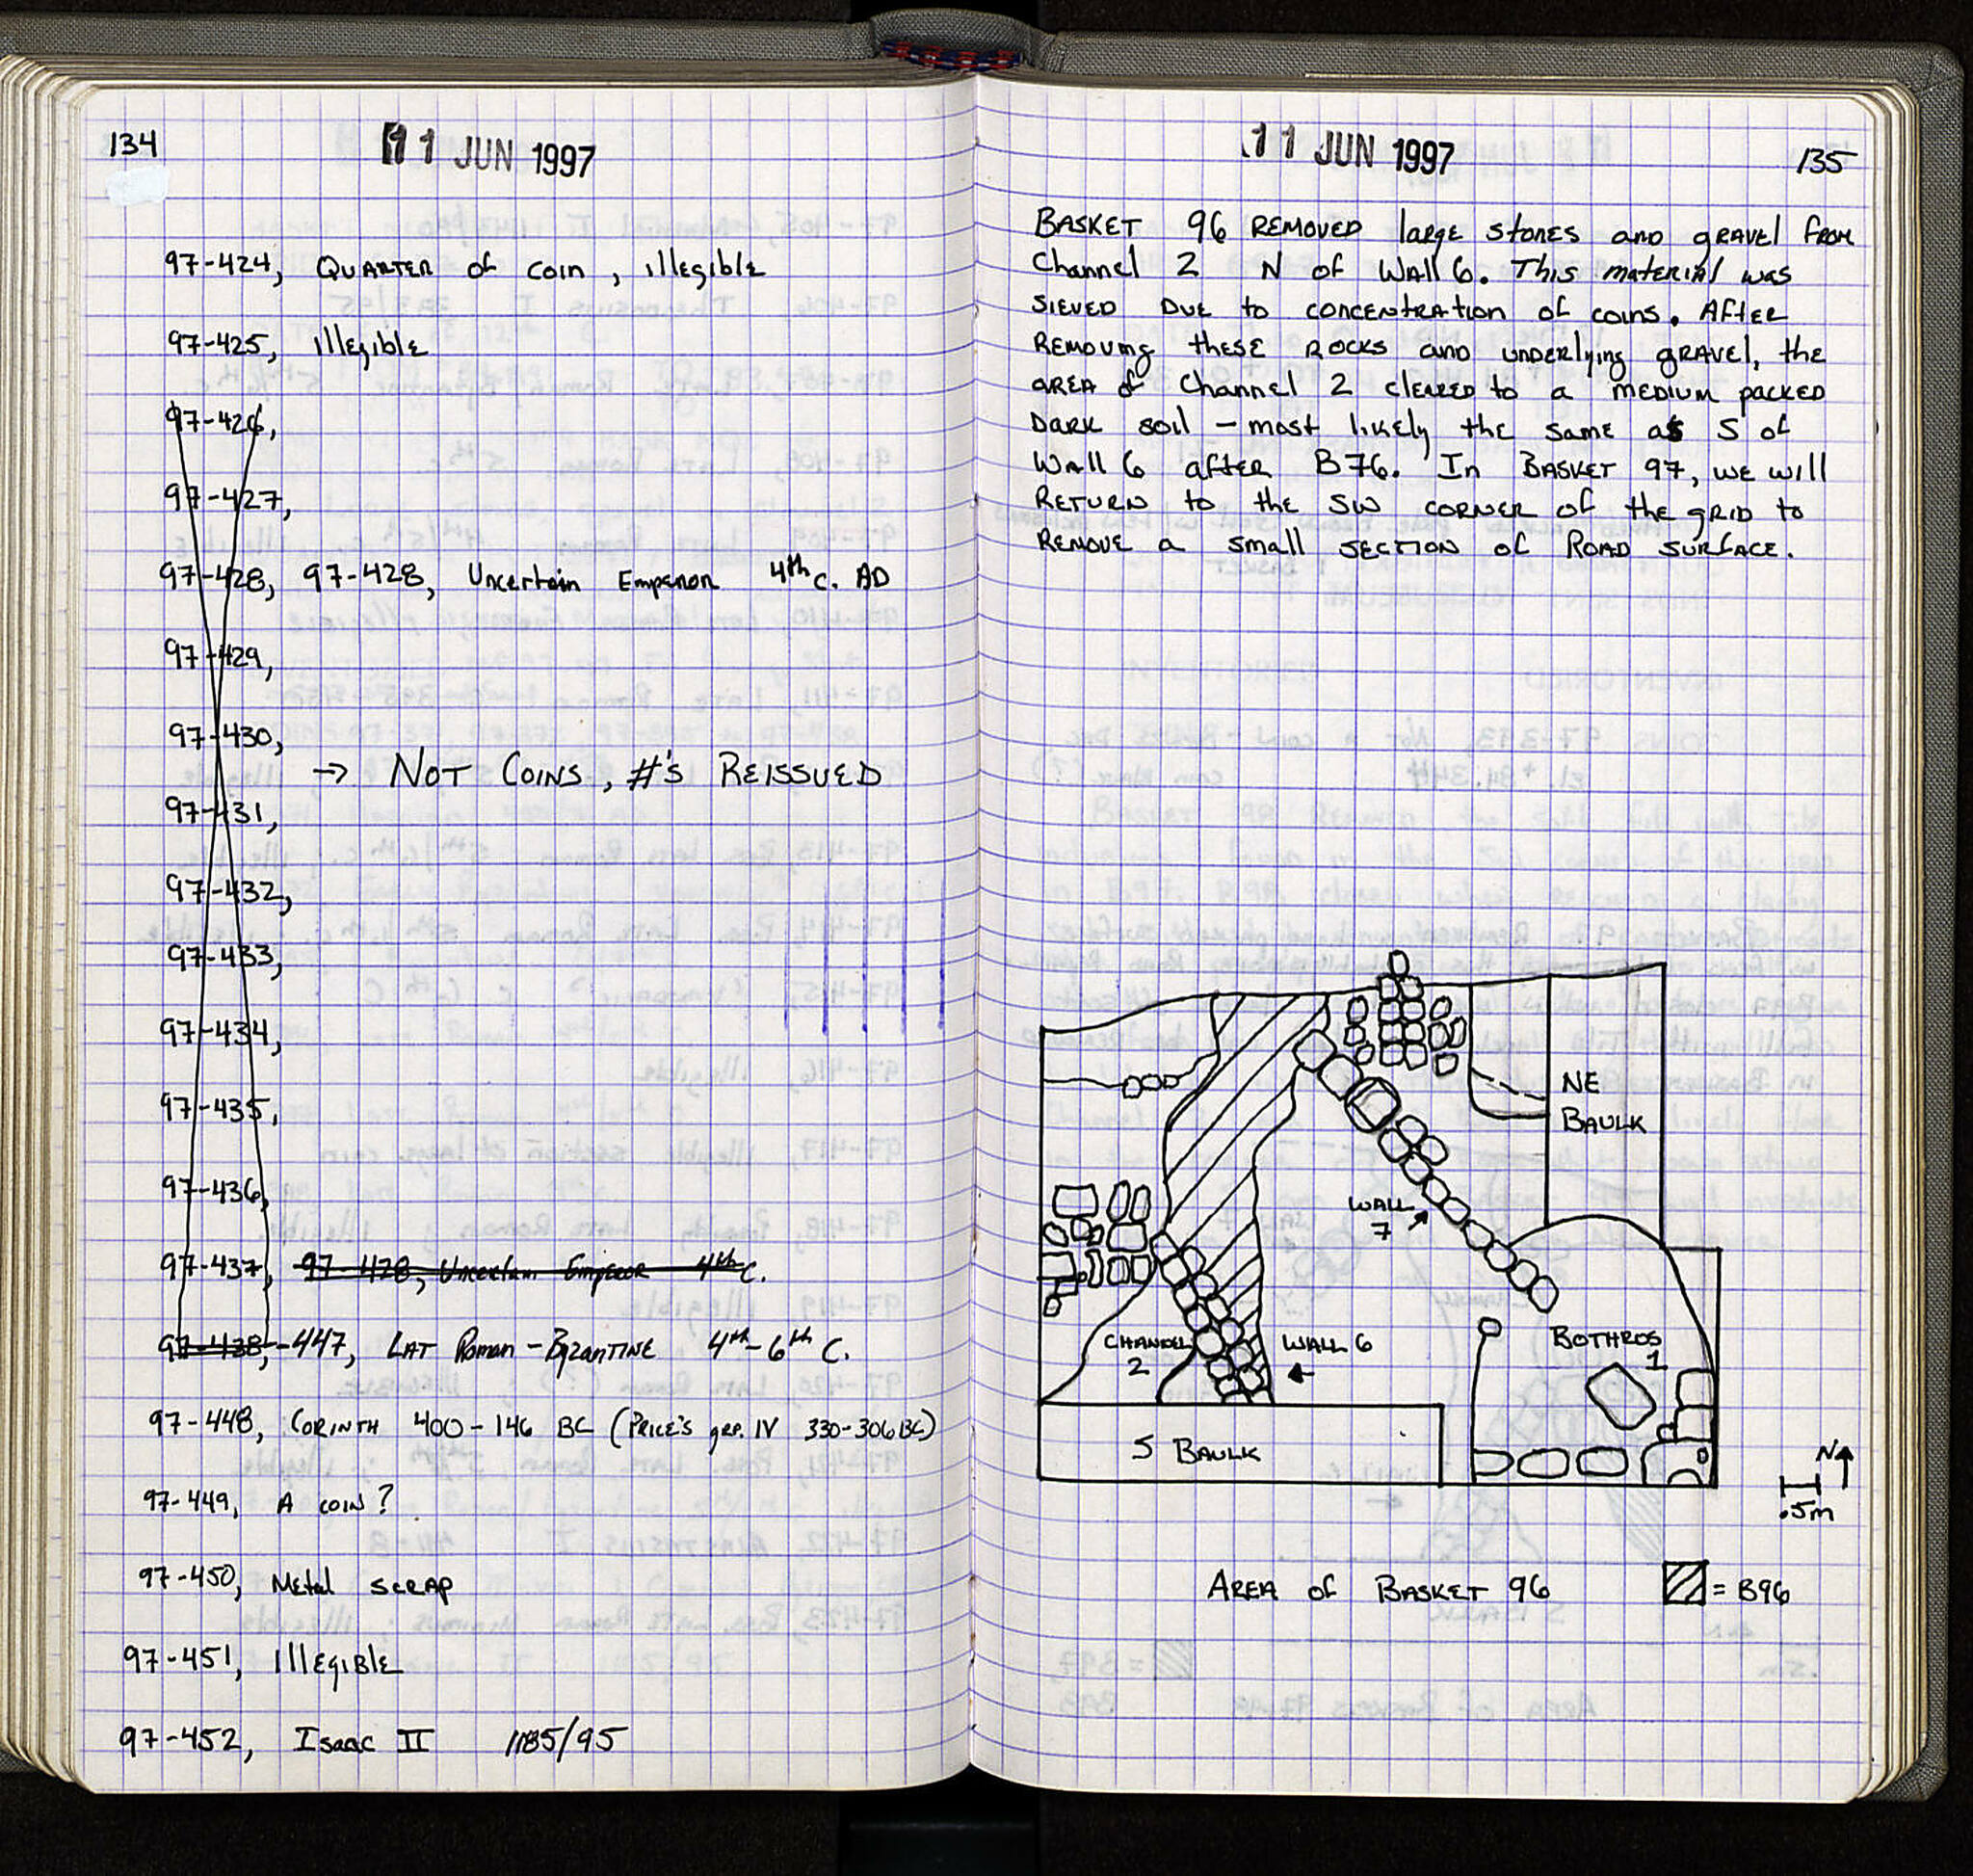 134
11 JUN 1997
97-424, QUARTER of coin, illegible
97-425, Illegible
97-426,
97-427,
97-428, 97-428, Uncertain Emperor 4th c. AD
97-429,
97-430,
→ NOT COINS, #'S REISSUED
97-431,
97-432,
97-433,
97-434,
97-435,
97-436,
97-437, 97-428, Uncertain Emperor 4th C.
97-438, -447, LAT Roman - Byzantine 4th-6th C.
97-448, CORINTH 400-146 BC (PRICE'S grp. IV 330-306 BC)
97-449, A COIN?
97-450, Metal SCRAP
97-451, Illegible
97-452, Isaac II 1185/95
11 JUN 1997
135
BASKET 96 REMOVED large stones and gravel from
Channel 2 N of Wall 6. This material was
SIEVED DUE to concentration of coins. After
Removing these Rocks and underlying gravel, the
area of Channel 2 cleared to a medium packed
Dark soil - most likely the same as S of
Wall 6 after B76. In Basket 97, we will
Return to the SW corner of the grid to
Remove a small section of Road surface.
NE
BAULK
WALL
7
CHANNEL
2
WALL 6
BOTHROS
1
S BAULK
N
.5m
AREA of BASKET 96
= B96